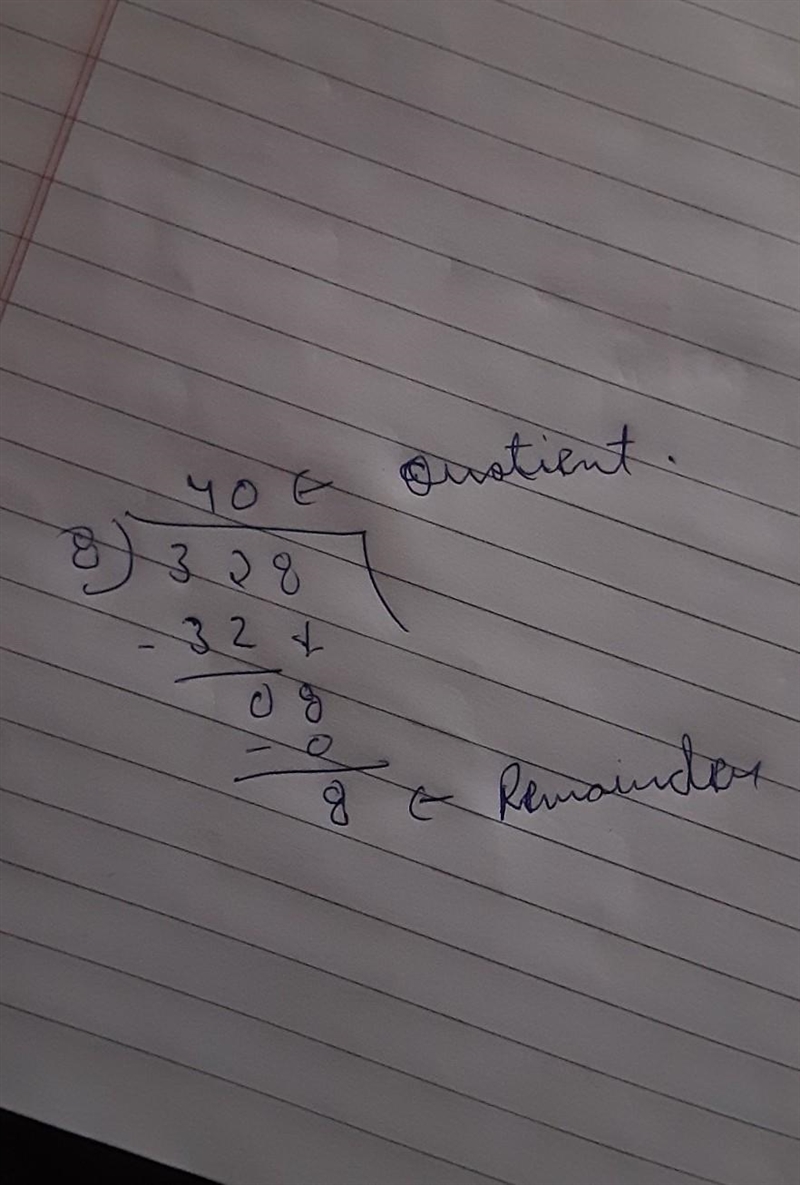 40 ← Quotient.
8) 328
- 32 ↓
08
- 0
8 ← Remainder